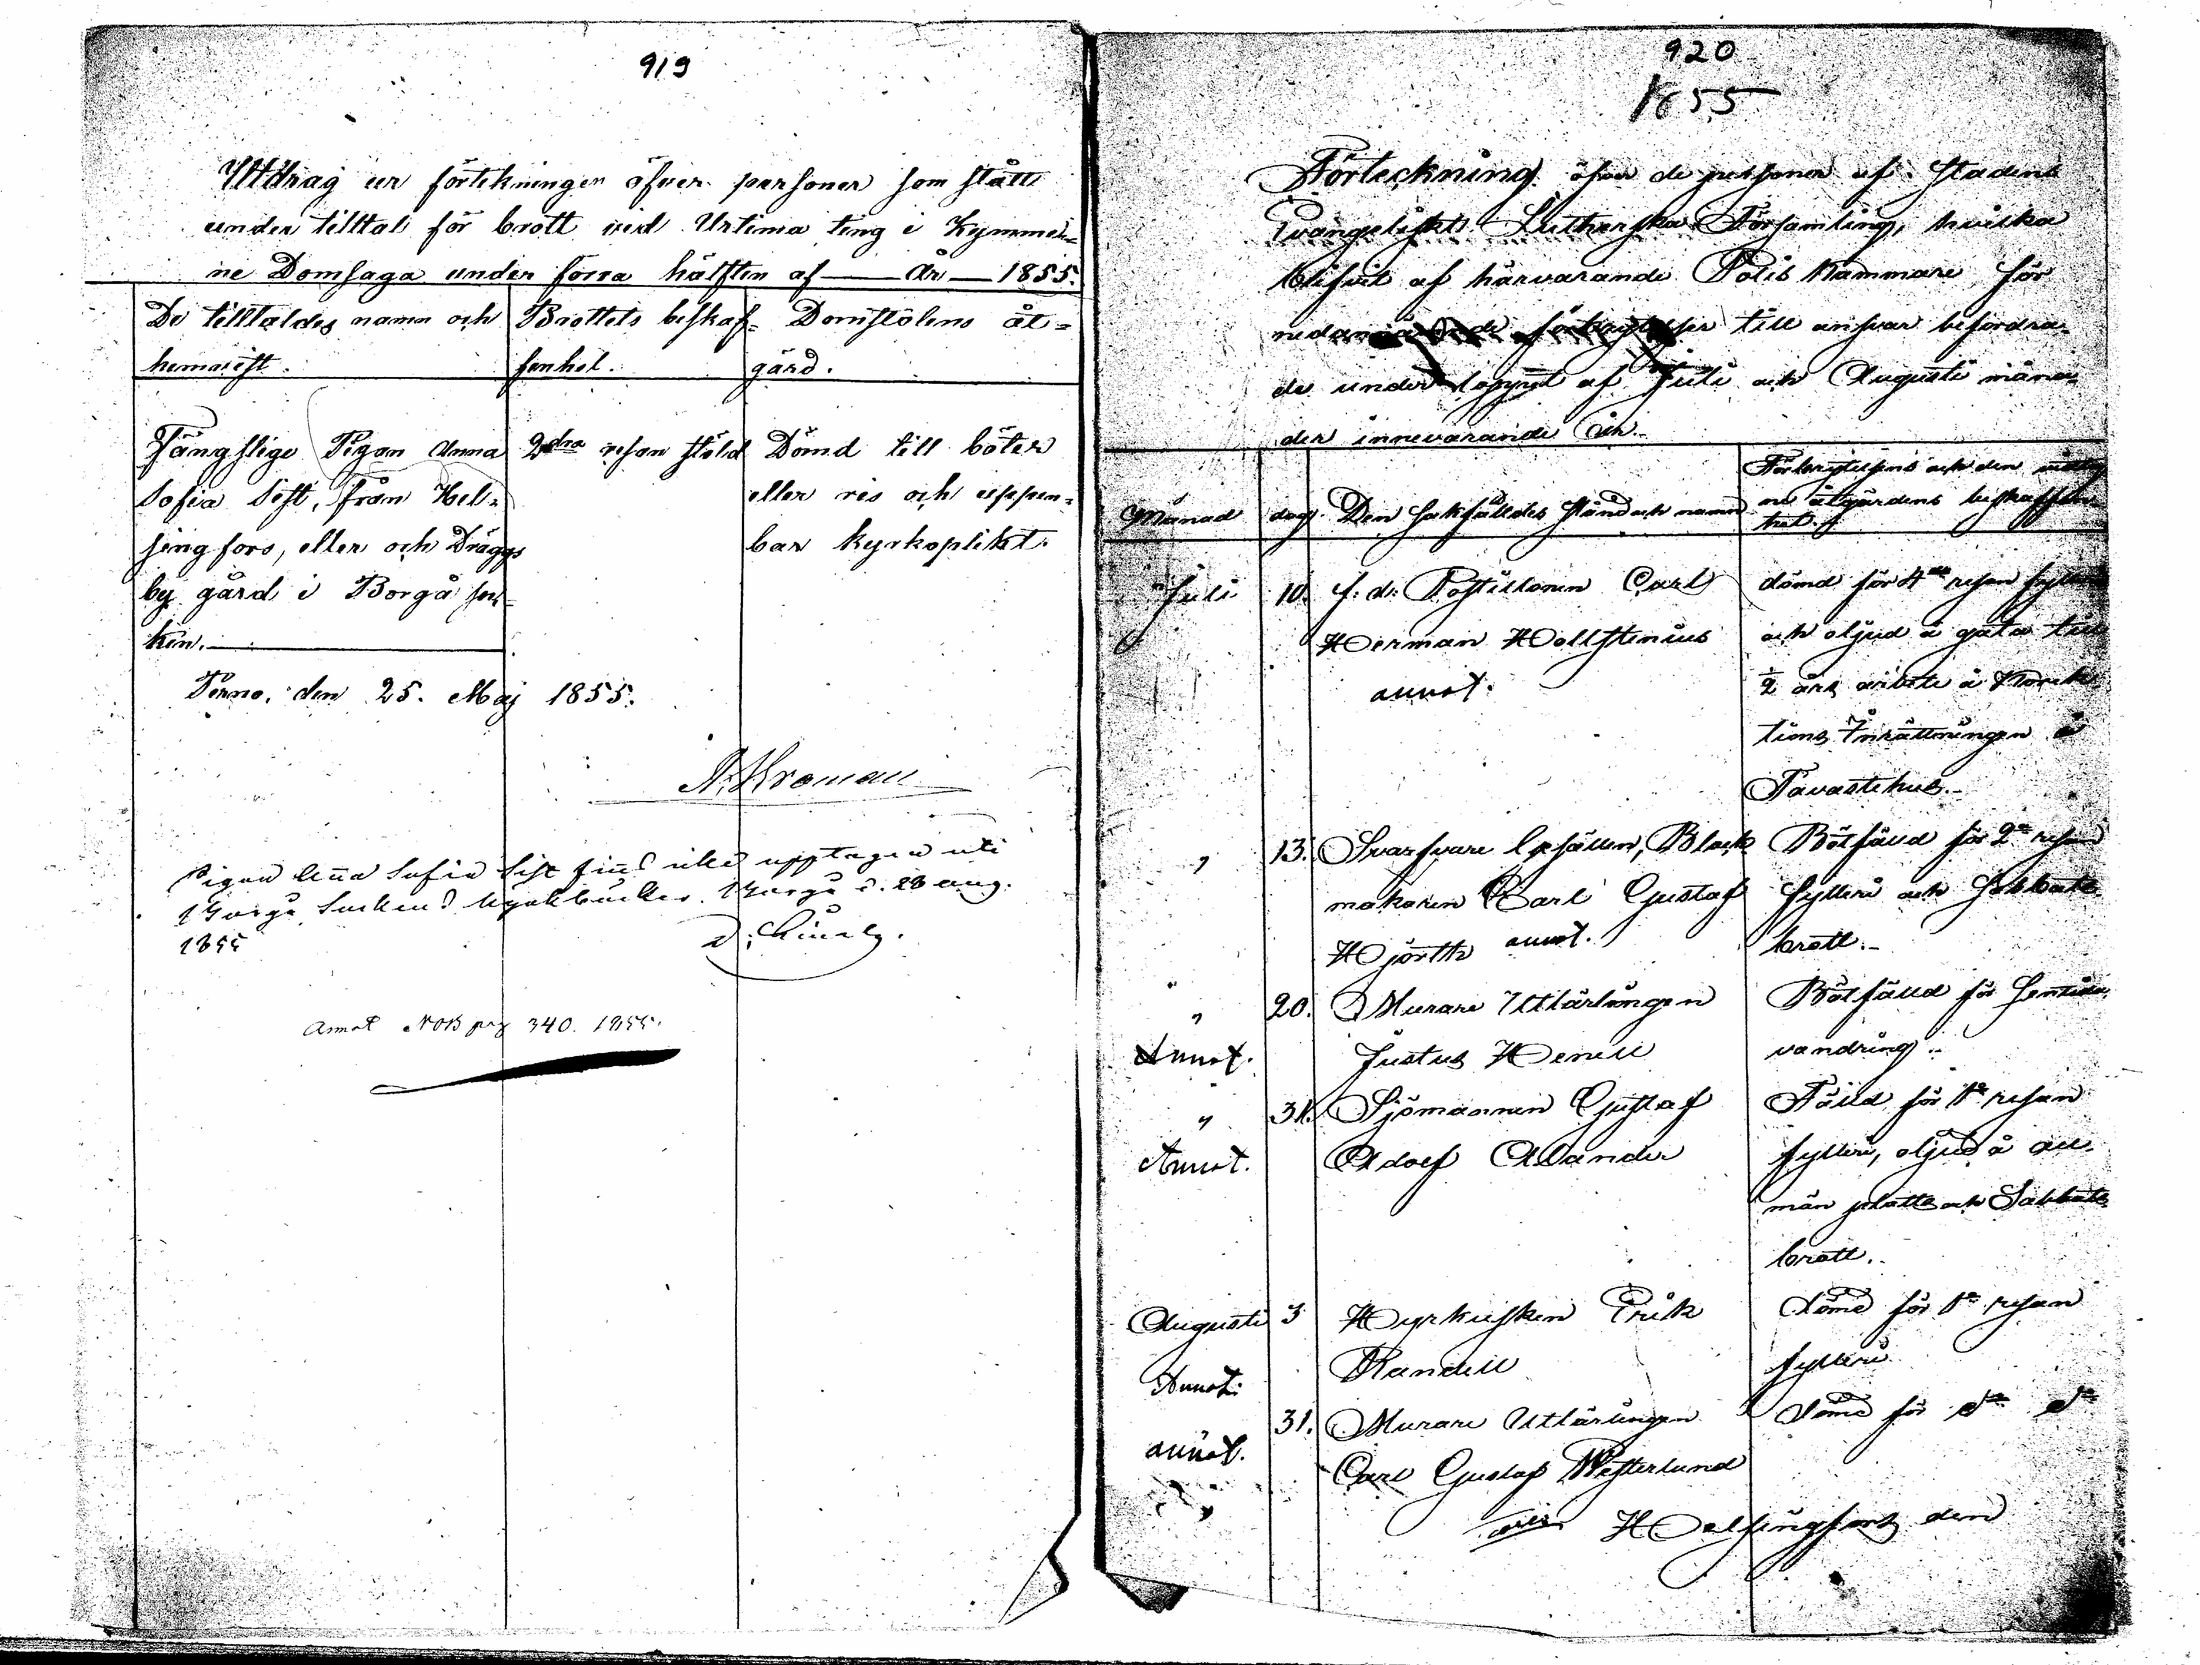 919
Utdrag ur förtekningen öfver personer som stått
under tilltal för brott vid Urtima ting i Kymme-
ne Domsaga under förra hälften af — År — 1855.
De tilltaldes namn och
hemvist.
Brottets beskaf-
fenhet.
Domstolens åt-
gärd.
Fängslige Pigan Anna
Sofia Sist, från Hel-
singfors, eller och Dräggs
by gård i Borgå soc-
ken.
2dra resan stöld
Dömd till böter
eller ris och uppen-
bar kyrkoplikt.
Perno, den 25. Maj 1855.
Pigan Anna Sofia Sist finns icke upptagen uti
Borgå Sockens kyrkböcker. Borgå d. 28 aug.
1855
Annot NOB pag 340. 1855.
920
1855
Förteckning öfver de personer af Stadens
Evangeliskt Lutherska Församling, hvilka
blifvit af härvarande Polis Kammare för
förbrytelser till ansvar befordra-
de under loppet af Juli och Augusti måna-
der innevarande år.
Månad
dag.
Den sakfälldes stånd och namn
Förbrytelsens och den
åtgärdens beskaffen-
het.
Juli 10. f. d. Postillonen Carl
Herman Hollstenius
annot.
dömd för 4de resan fylleri
och oljud å gata till
½ års arbete å Korrek-
tions Inrättningen i
Tavastehus.
" 13. Svarfvare Gesällen, Block
makaren Carl Gustaf
Hjörtte annot.
Bötfälld för 2a resan
fylleri och Sabbats
brott.
" 20. Murare Utlärlingen
Annot. Justus Henell
Bötfälld för
vandring.
" 31. Sjömannen Gustaf
Annot. Adolf Alander
Fälld för 1a resan
fylleri, oljud å all-
män plats och Sabbats
brott.
Augusti 3 Hyrkusken Erik
Annot. Randell
dömd för 1a resan
fylleri
31. Murare Utlärlingen
annot. Carl Gustaf Westerlund
dömd för do do
Helsingfors den